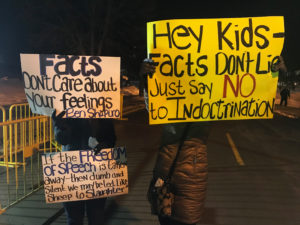 Facts
Don't Care about
Your feelings
Ben Shapiro
If the FREEDOM
OF SPEECH is taken
away - then dumb and
silent we may be led like
sheep to Slaughter
Hey Kids-
Facts Don't Lie
Just Say NO
to Indoctrination